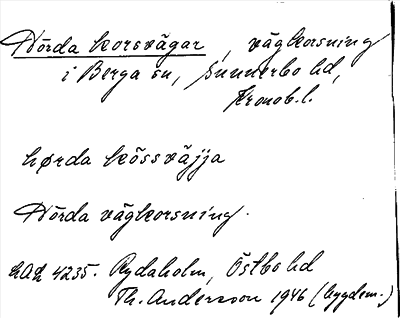 Hörda korsvägar, vägkorsning
i Berga sn, Sunnerbo hd,
Kronob. l.
hørda kössväjja
Hörda vägkorsning.
LAL 4235. Rydaholm, Östbo hd
Th. Andersson 1946 (bygdem.)